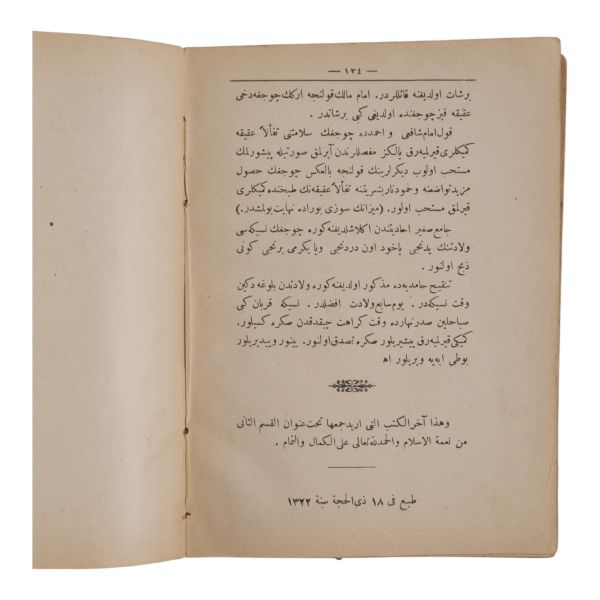 — ١٣٤ —
برشات اولديغنه قائللردر. امام مالك قولنجه اركك چوجغه دخی
عقيقه قيز چوجغنده اولديغی كبی برشاتدر .
قول امام شافعی و احمدده چوجغك سلامتی تفألاً عقيقه
كيكلری قيرلميه رق يالكز مفصللرندن آيرلمق صورتيله پيشورلمك
مستحب اولوب ديكرلرينك قولنجه بالعكس چوجغك حصول
مزيد تواضعنه و خمود نار بشريتنه تفألاً عقيقه نك طبخنده كيكلری
قيرلمق مستحب اولور. (ميزانك سوزی بوراده نهايت بولمشدر.)
جامع صغير احاديثندن اكلاشلديغنه كوره چوجغك نسيكه سی
ولادتنك يدنجی ياخود اون دردنجی ويا يكرمی برنجی كونی
ذبح اولنور .
تنقيح حامديه ده مذكور اولديغنه كوره ولادتدن بلوغه دكين
وقت نسيكه در . يوم سابع ولادت افضلدر. نسيكه قربان كبی
صباحلين صدر نهارده وقت كراهت چيقدقدن صكره كسيلور.
كميكی قيرلميه رق پيشيريلور صكره تصدق اولنور. يينور وييديريلور
بوطی ابه يه ويريلور اه
وهذا آخر الكتب التی اريد جمعها تحت عنوان القسم الثانی
من نعمة الاسلام والحمد لله تعالی علی الكمال والتمام .
طبع فی ١٨ ذی الحجة سنة ١٣٢٢